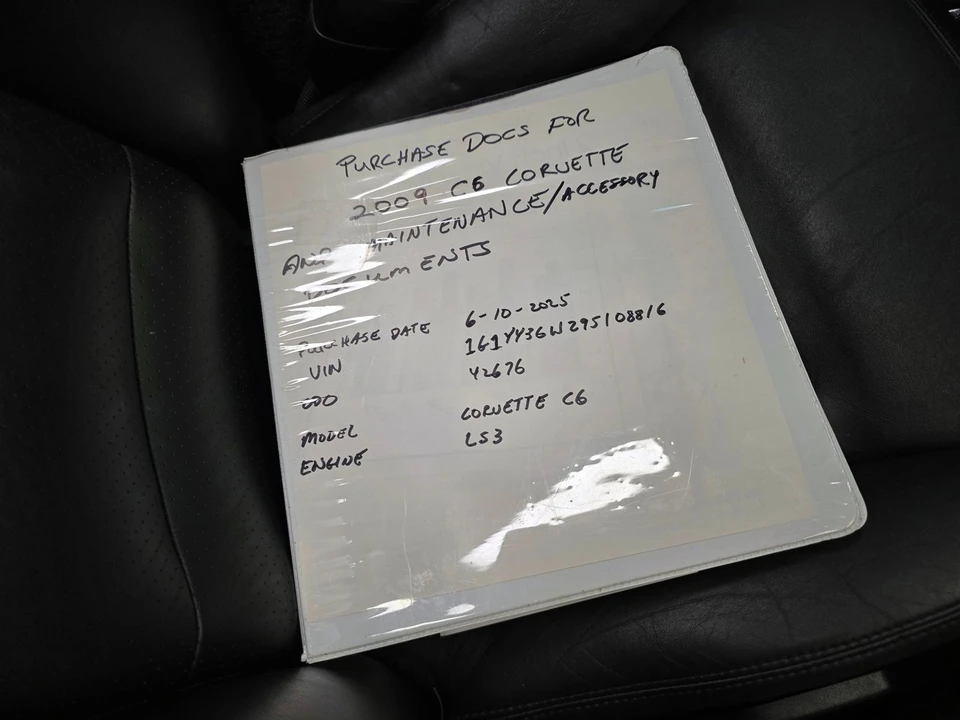 PURCHASE DOCS FOR
2009 C6 CORVETTE
AND MAINTENANCE/ACCESSORY
DOCUMENTS
PURCHASE DATE 6-10-2025
VIN 1G1YY36W295108816
ODO 42676
MODEL CORVETTE C6
ENGINE LS3